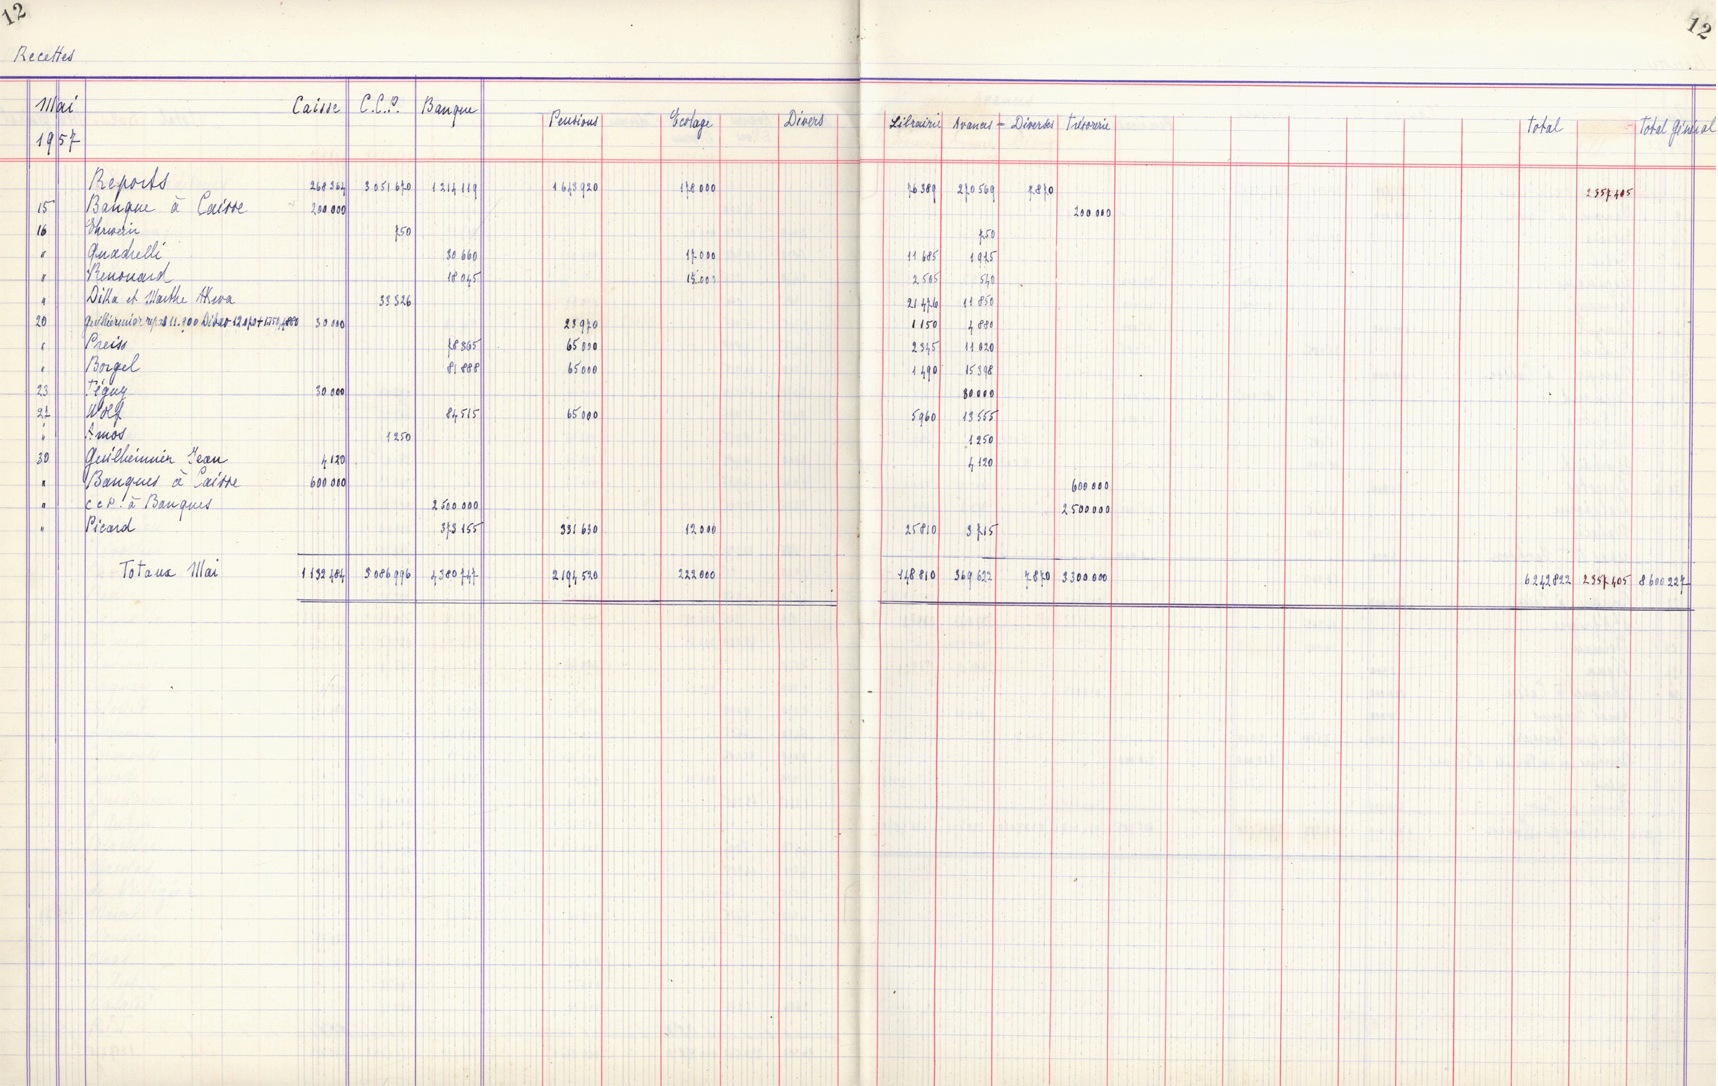 12
12
Recettes
Mai
1957
Caisse C.C.P. Banque Pensions Ecolage Divers Librairie Avances - Diverses trésorerie total total général
Reports 268 364 3 051 670 1 214 119 1 643 920 178 000 76 389 270 569 7 870 2 357 405
15 Banque à Caisse 200 000 200 000
16 750 750
" Quadrelli 30 660 17 000 11 685 1 975
" Renouard 18 045 15 000 2 505 540
" Ditka et Marthe Akiva 33 326 21 476 11 850
20 30 000 23 970 1 150 4 880
" Preiss 78 365 65 000 2 345 11 020
" Borgel 81 888 65 000 1 490 15 398
23 Péguy 30 000 30 000
27 Wolf 84 515 65 000 5 960 13 555
" Amos 1 250 1 250
30 Guilheimier Jean 4 120 4 120
" Banques à Caisse 600 000 600 000
" c c P. à Banques 2 500 000 2 500 000
" Picard 373 155 331 630 12 000 25 810 3 715
Totaux Mai 1 132 484 3 086 996 4 380 747 2 194 520 222 000 148 810 369 622 7 870 3 300 000 6 242 822 2 357 405 8 600 227